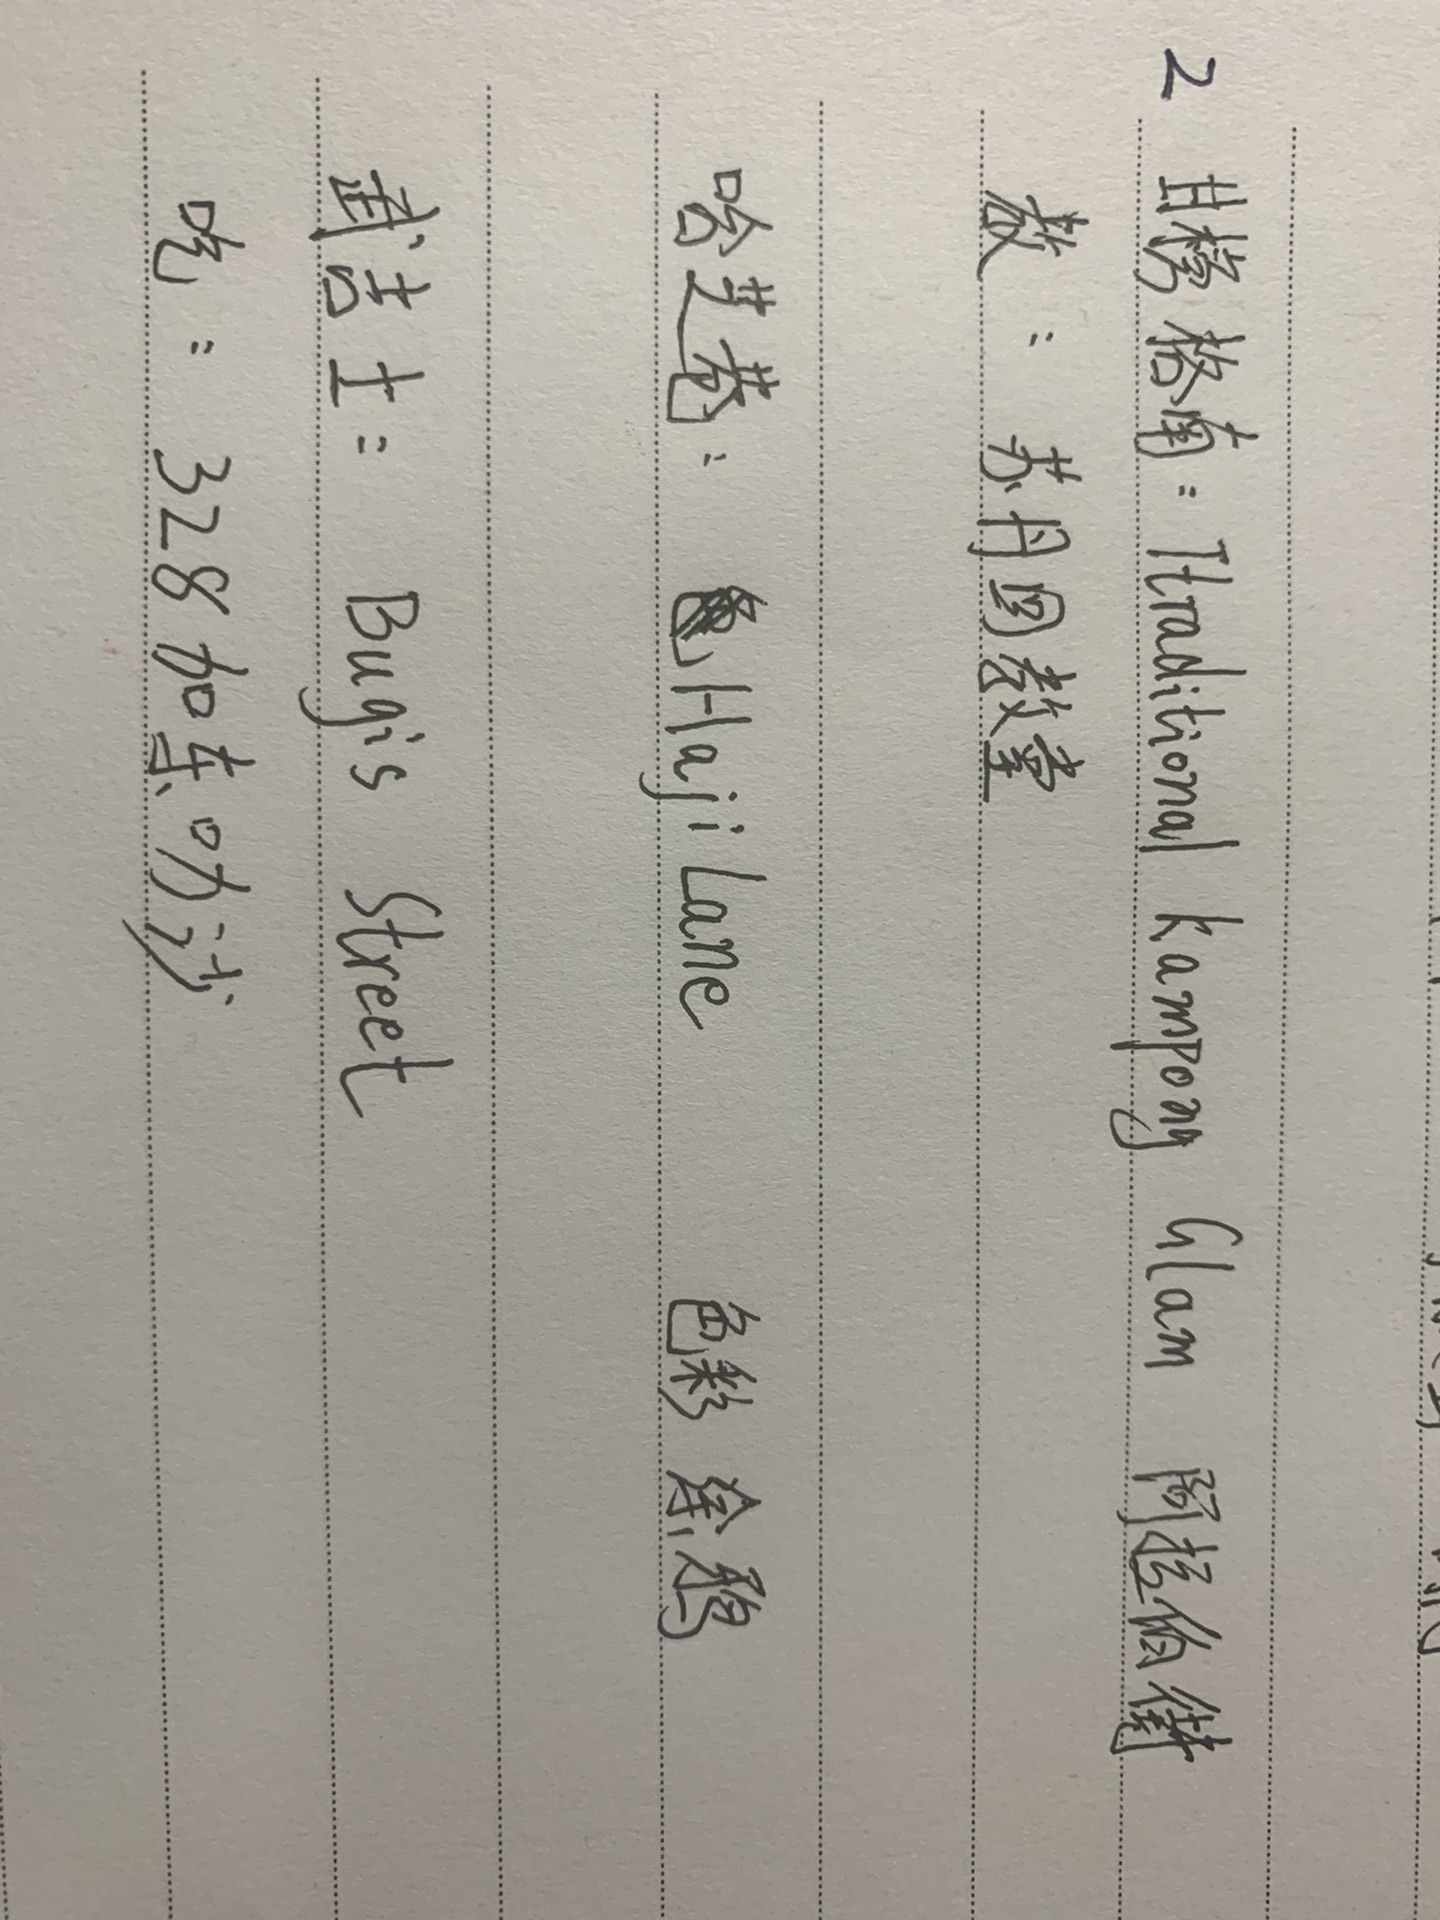 2 甘榜格南：Traditional kampong Glam 阿拉伯街
教：苏丹回教堂
哈芝巷：Haji Lane 色彩 涂鸦
武吉士：Bugis Street
吃：328加东叻沙